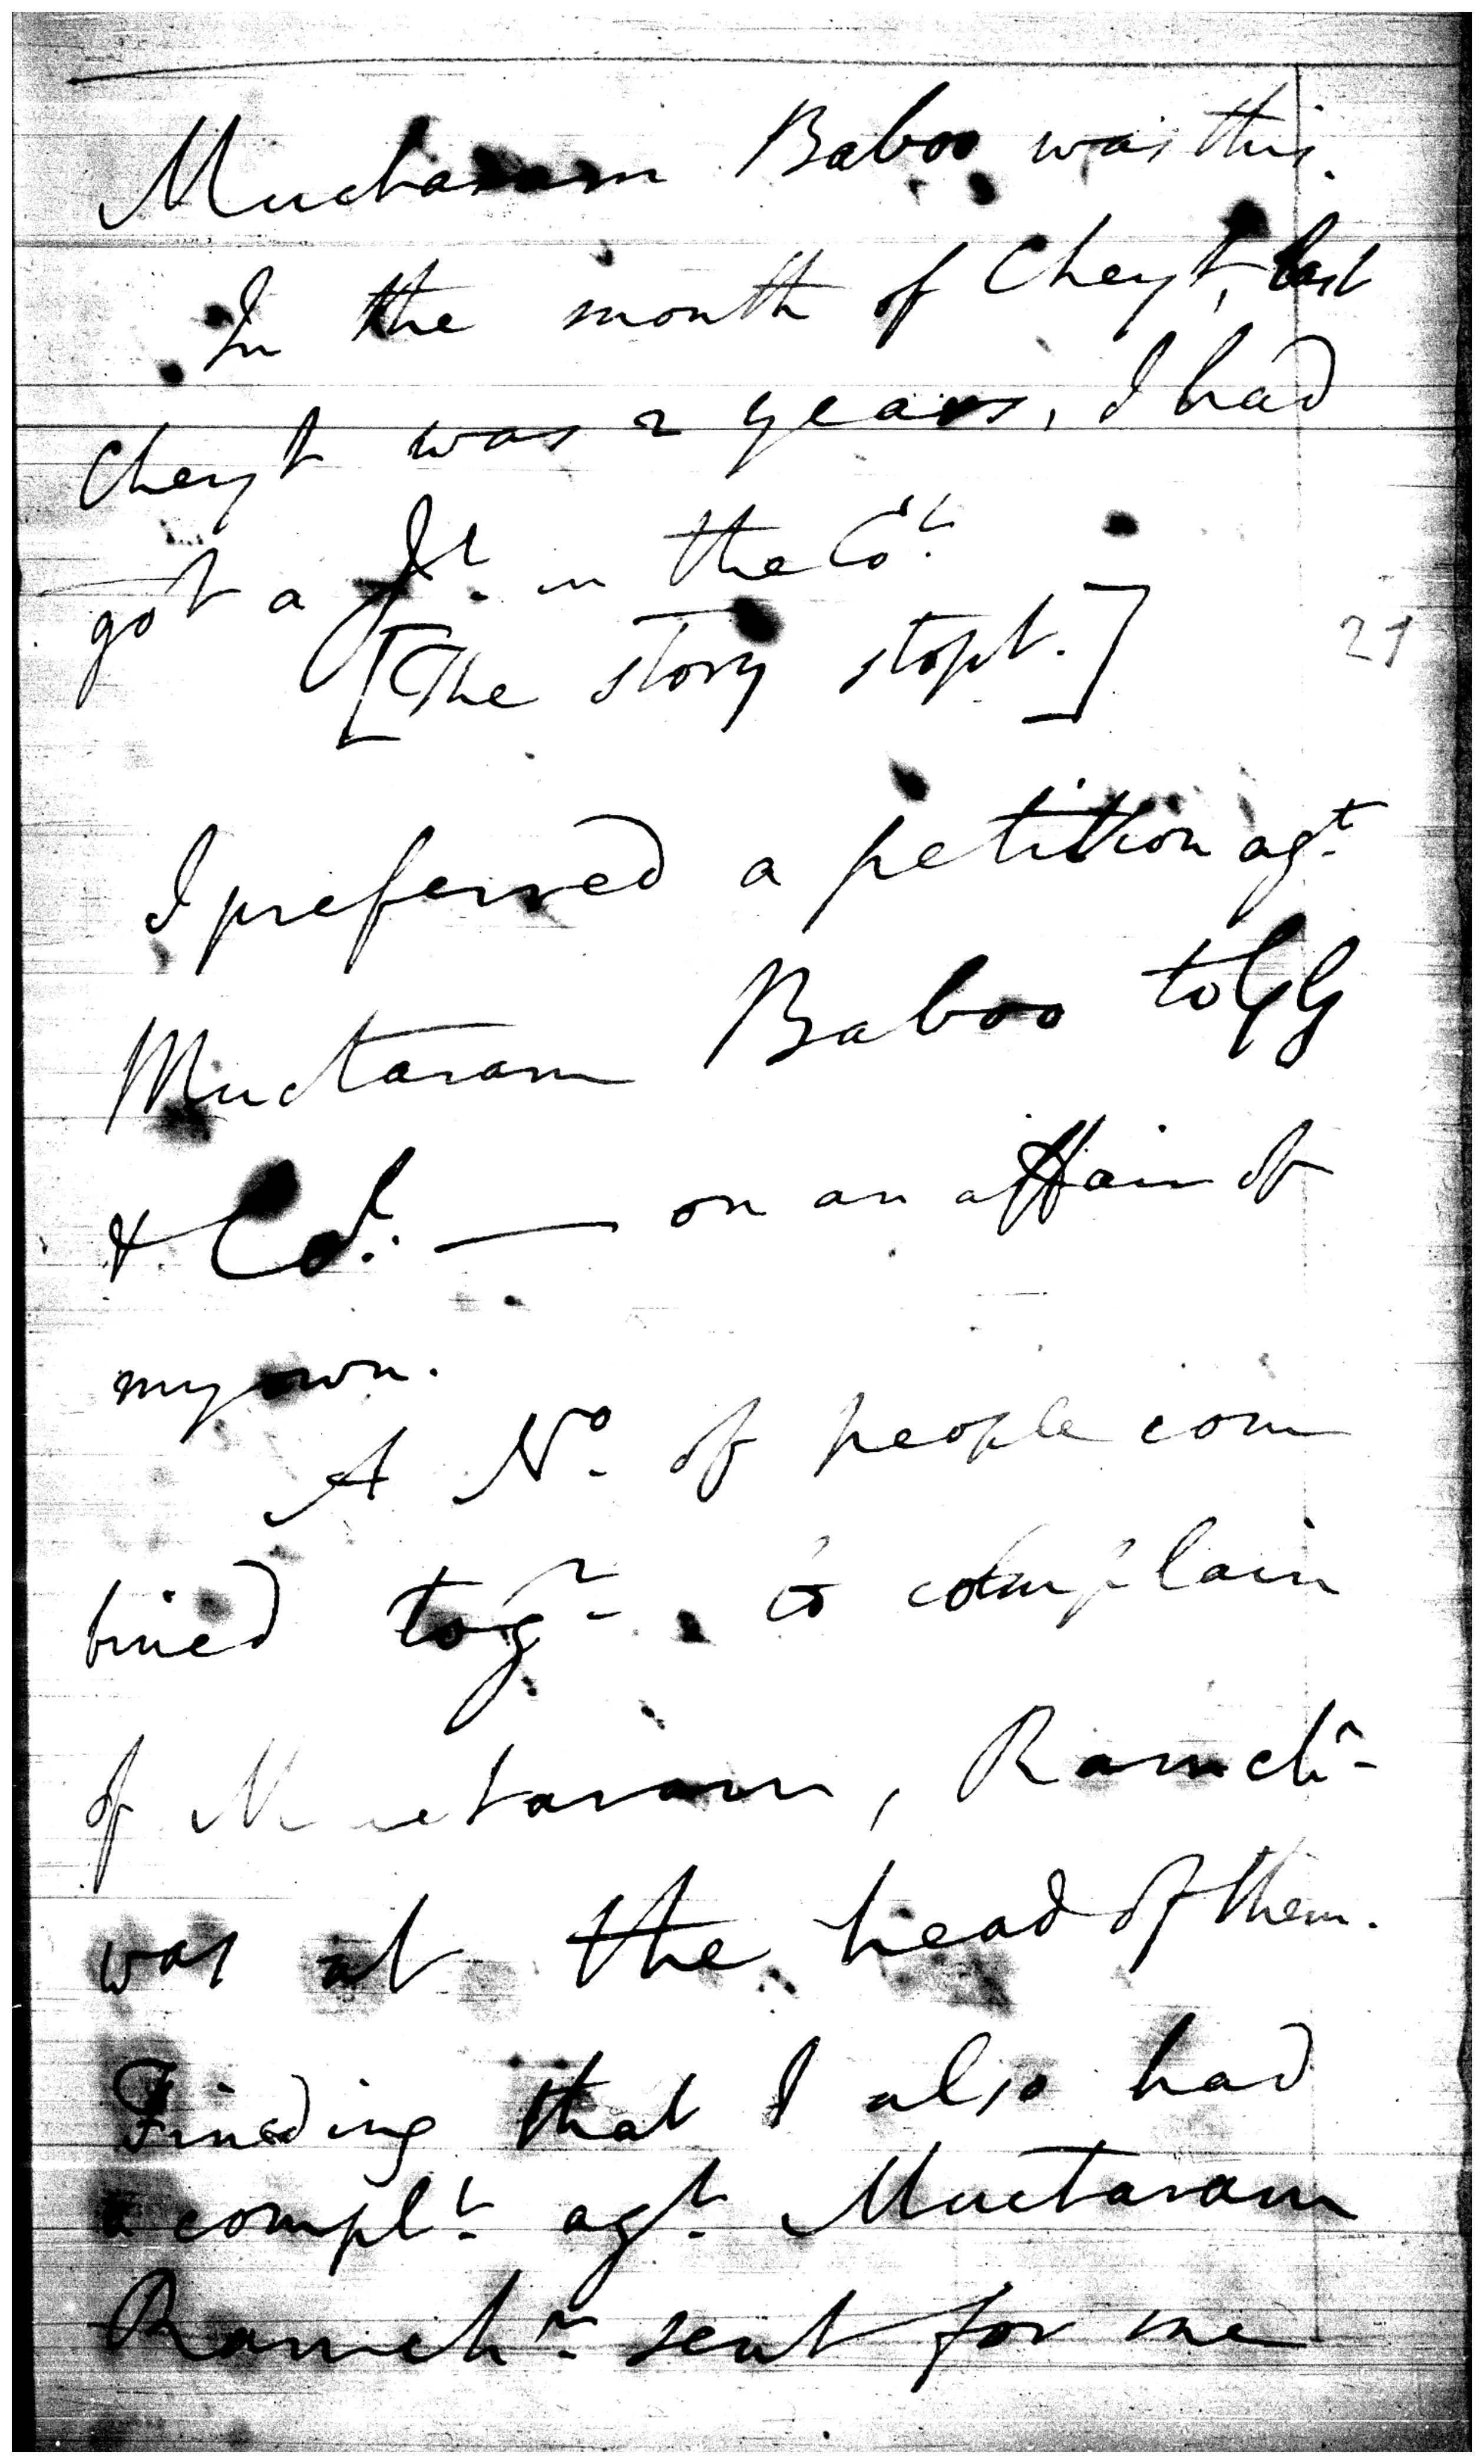 Muctaram Baboo was this.
In the month of Cheyt, last
Cheyt was 2 years, I had
got a Jt. in the Ct.
[The story stopt.]
21
I preferred a petition agt.
Muctaram Baboo to GG
& Cl. — on an affair of
my own.
A No. of people com
bined togr. to complain
of Muctaram, Ramchr.
was at the head of them.
Finding that I also had
a complt. agt. Muctaram
Ramchr. sent for me